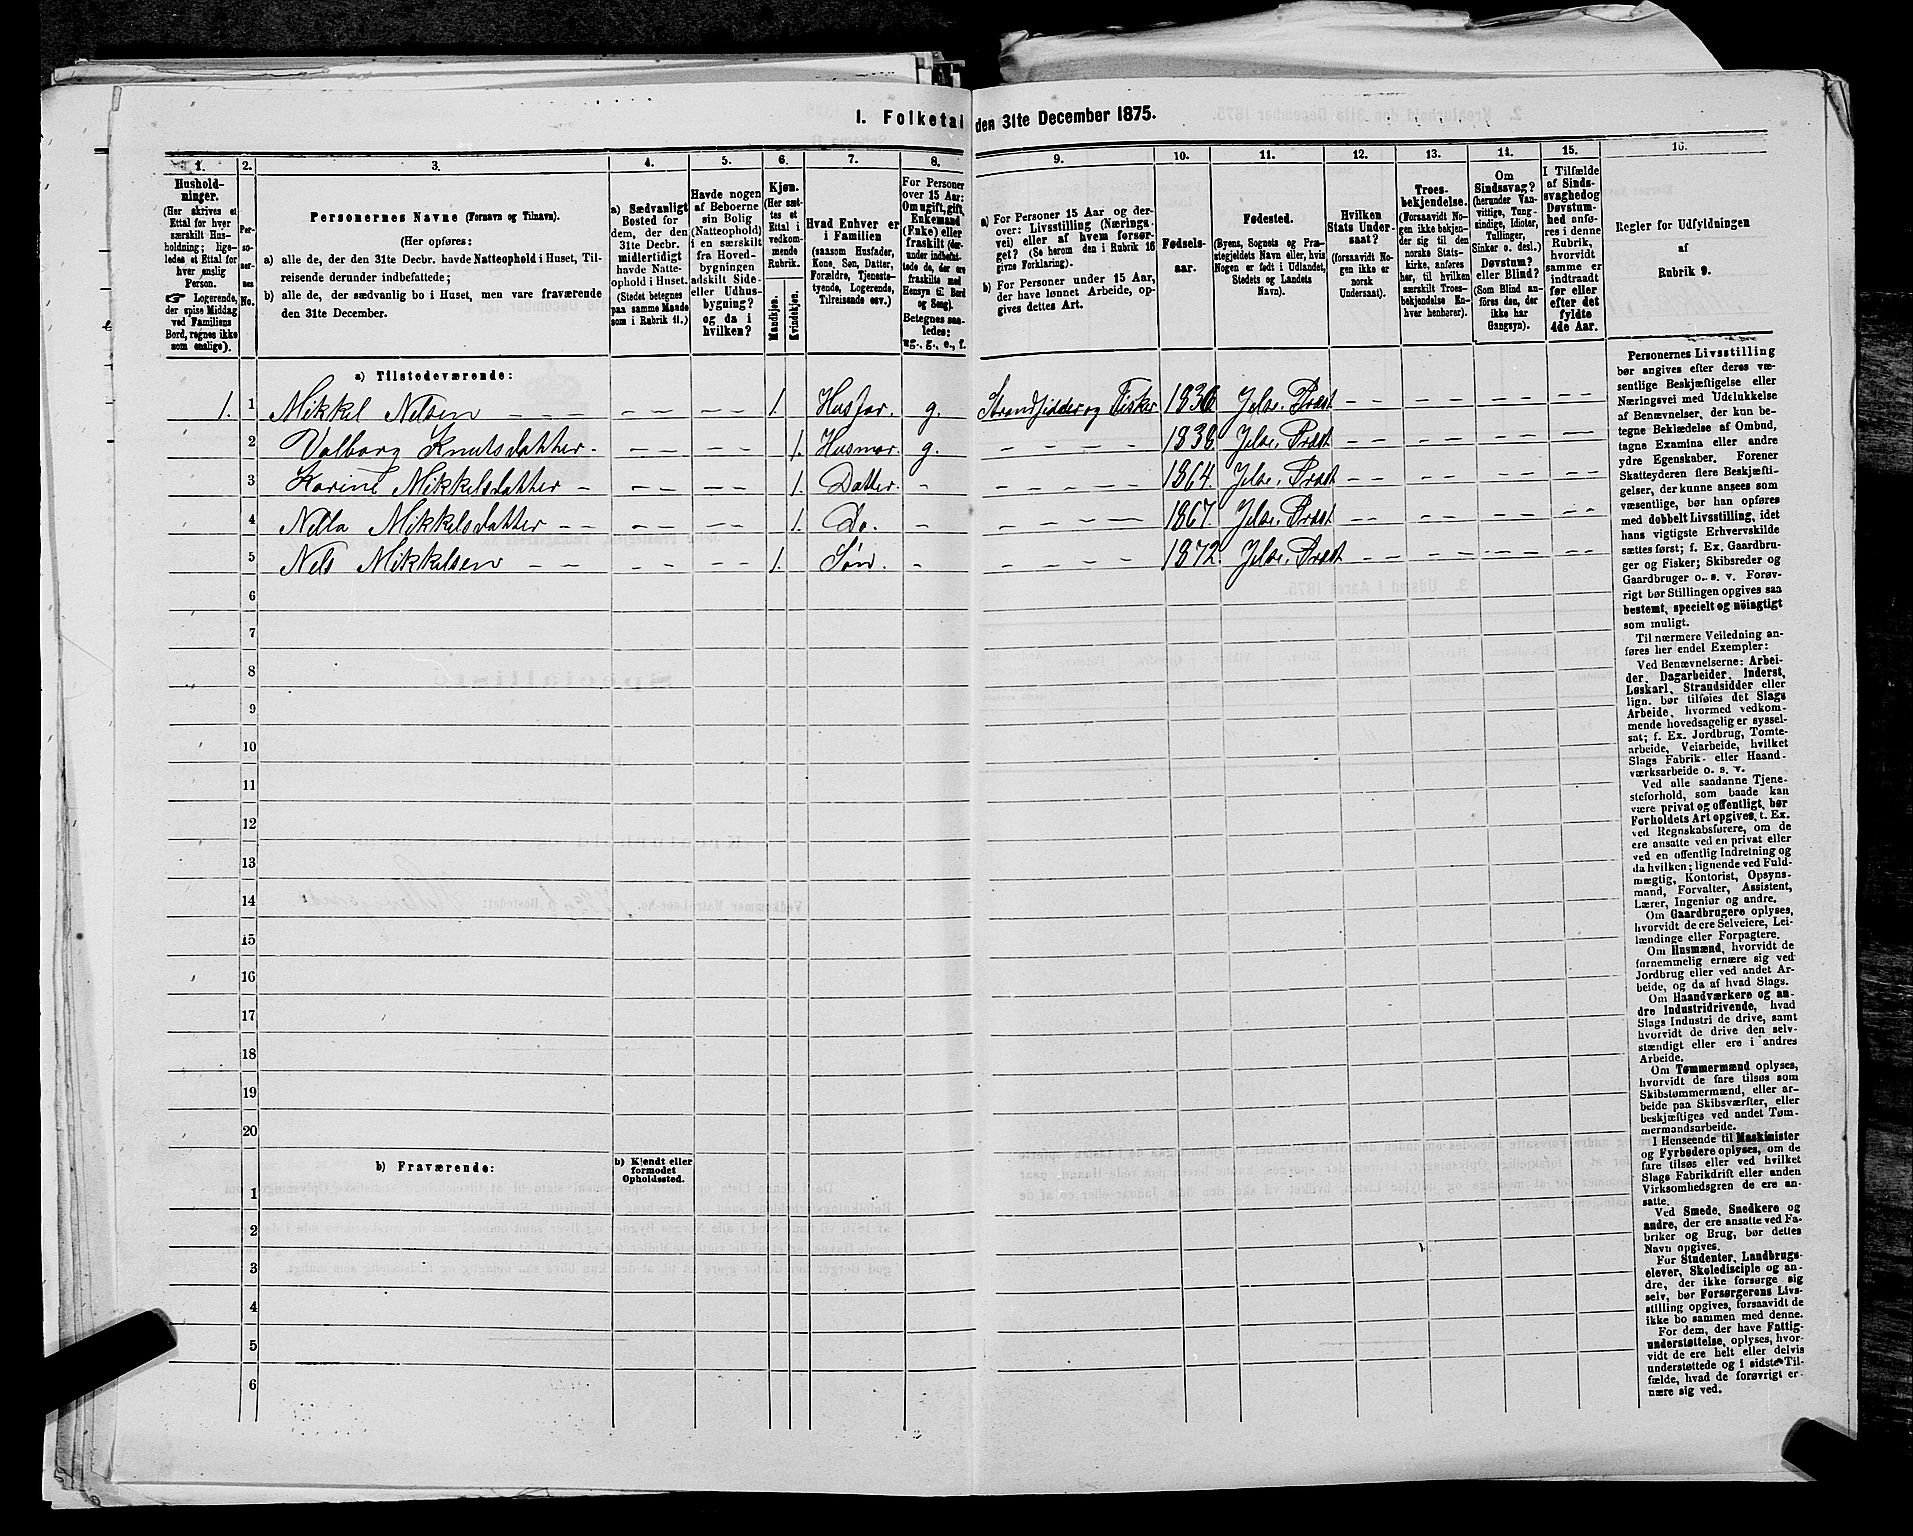 1. Folketal den 31te December 1875.
1.
Hushold-
ninger.
(Her skrives et
Ettal for hver
særskilt Hus-
holdning; lige-
ledes et Ettal for
hver enslig
Person.
Logerende,
der spise Middag
ved Familiens
Bord, regnes ikke
som enslige).
2.
Per-
so-
ner-
nes
No.
3.
Personernes Navne (Fornavn og Tilnavn).
(Her opføres:
a) alle de, der den 31te Decbr. havde Natteophold i Huset, Til-
reisende derunder indbefattede;
b) alle de, der sædvanlig bo i Huset, men vare fraværende
den 31te December.
4.
a) Sædvanligt
Bosted for
dem, der den
31te Decbr.
midlertidigt
havde Natte-
ophold i Huset.
(Stedet betegnes
paa samme Maade
som i Rubrik 11.)
5.
Havde nogen
af Beboerne
sin Bolig
(Natteophold)
i en særskilt
fra Hoved-
bygningen
adskilt Side-
eller Udhus-
bygning?
og da i
hvilken?
6.
Kjøn.
(Her sæt-
tes et
Ettal i
vedkom-
mende
Rubrik.
Mandkjøn.
Kvindekjøn.
7.
Hvad Enhver er
i Familien
(saasom Husfader,
Kone, Søn, Datter,
Forældre, Tjeneste-
tyende, Logerende,
Tilreisende osv.)
8.
For Personer
over 15 Aar:
Om ugift, gift,
Enkemand
(Enke) eller
fraskilt (der-
under indbefat-
tede de, der ere
fraskilte med
Hensyn til Bord
og Seng).
Betegnes saa-
ledes:
ug., g., e., f.
9.
a) For Personer 15 Aar og der-
over: Livsstilling (Nærings-
vei) eller af hvem forsør-
get? (Se herom den i Rubrik 16
givne Forklaring).
b) For Personer under 15 Aar,
der have lønnet Arbeide, op-
gives dettes Art.
10.
Fødsels-
aar.
11.
Fødested.
(Byens, Sognets og Præ-
stegjeldets Navn eller, hvis
Nogen er født i Udlandet,
Stedets og Landets
Navn).
12.
Hvilken
Stats Under-
saat?
(forsaavidt No-
gen ikke er
norsk
Undersaat).
13.
Troes-
bekjendelse.
(Forsaavidt No-
gen ikke bekjen-
der sig til den
norske Stats-
kirke, anføres
her, til hvilken
særskilt Troes-
bekjendelse En-
hver henhører).
14.
Om
Sindssvag?
(herunder Van-
vittige, Tung-
sindige, Idioter,
Tullinger,
Sinker o. desl.)
Døvstum?
eller Blind?
(Som Blind an-
føres den, der
ikke har
Gangsyn).
15.
I Tilfælde
af Sinds-
svaghed og
Døvstum-
hed anfø-
res i denne
Rubrik,
hvorvidt
samme er
indtraadt
før eller
efter det
fyldte
4de Aar.
16.
Regler for Udfyldningen
af
Rubrik 9.
a) Tilstedeværende:
1. 1 Mikkel Nilsen 1. Husfar. g. Strandsidder og Fisker 1836 Jelse. Præst
2 Valborg Knutsdatter 1. Husmor g. 1838. Jelse. Præst
3 Karine Mikkelsdatter 1. Datter. 1864. Jelse. Præst
4 Nilla Mikkelsdatter 1. Do. 1867. Jelse. Præst
5 Nils Mikkelsen 1. Søn. 1872. Jelse. Præst
6
7
8
9
10
11
12
13
14
15
16
17
18
19
20
b) Fraværende: b) Kjendt eller
formodet
Opholdssted.
1
2
3
4
5
6
Personernes Livsstilling
bør angives efter deres væ-
sentlige Beskjæftigelse eller
Næringsvei med Udelukkelse
af Benævnelser, der kun be-
tegne Beklædelse af Ombud,
tagne Examina eller andre
ydre Egenskaber. Forener
Skatteyderen flere Beskjæfti-
gelser, der kunne ansees som
væsentlige, bør han opføres
med dobbelt Livsstilling, idet
hans vigtigste Erhvervskilde
sættes først; f. Ex. Gaardbru-
ger og Fisker; Skibsreder og
Gaardbruger o. s. v. Forøv-
rigt bør Stillingen opgives saa
bestemt, specielt og nöiagtigt
som muligt.
Til nærmere Veiledning an-
føres her endel Exempler:
Ved Benævnelserne: Arbei-
der, Dagarbeider, Inderst,
Løskarl, Strandsidder eller
lign. bør tilføies det Slags
Arbeide, hvormed vedkom-
mende hovedsagelig er syssel-
sat; f. Ex. Jordbrug, Tomte-
arbeide, Veiarbeide, hvilket
Slags Fabrik- eller Haand-
værksarbeide o. s. v.
Ved alle saadanne Tjene-
steforhold, som baade kan
være privat og offentligt, bør
Forholdets Art opgives, t. Ex.
ved Regnskabsførere, om de
ere ansatte ved en privat eller
ved en offentlig Indretning og
da hvilken; lignende ved Fuld-
mægtig, Kontorist, Opsyns-
mand, Forvalter, Assistent,
Lærer, Ingeniør og andre.
Om Gaardbrugere oplyses,
hvorvidt de ere Selveiere, Lei-
lændinge eller Forpagtere.
Om Husmænd, hvorvidt de
fornemmelig ernære sig ved
Jordbrug eller ved andet Ar-
beide, og da af hvad Slags.
Om Haandværkere og an-
dre Industridrivende, hvad
Slags Industri de drive, samt
hvorvidt de drive den selv-
stændigt eller ere i andres
Arbeide.
Om Tømmermænd oplyses,
hvorvidt de fare tilsøs som
Skibstømmermænd, eller ar-
beide paa Skibsværfter, eller
beskjæftiges ved andet Tøm-
mermandsarbeide.
I Henseende til Maskinister
og Fyrbødere oplyses, om de
fare tilsøs eller ved hvilket
Slags Fabrikdrift eller anden
Virksomhedsgren de ere an-
satte.
Ved Smede, Snedkere og
andre, der ere ansatte ved Fa-
briker og Brug, bør dettes
Navn opgives.
For Studenter, Landbrugs-
elever, Skoledisciple og an-
dre, der ikke forsørge sig
selv, bør Forsørgerens Livs-
stilling opgives, forsaavidt de
ikke bo sammen med denne.
For dem, der have Fattig-
understøttelse, oplyses, hvor-
vidt de ere helt eller delvis
understøttede og i sidste Til-
fælde, hvad de forøvrigt er-
nære sig ved.